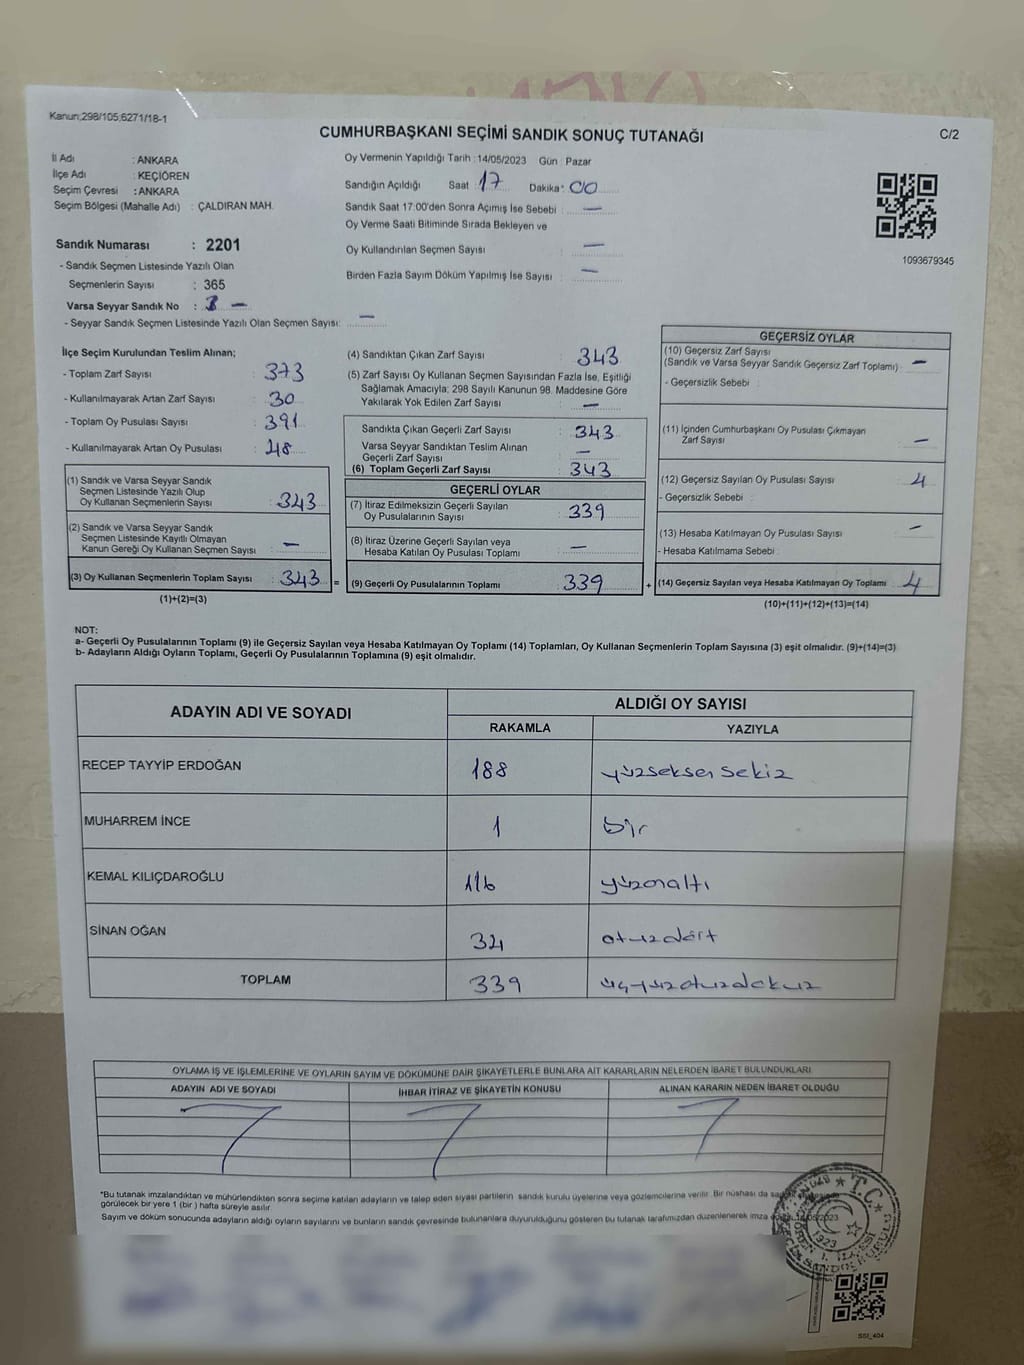 Kanun;298/105;6271/18-1
CUMHURBAŞKANI SEÇİMİ SANDIK SONUÇ TUTANAĞI
C/2
İl Adı : ANKARA
İlçe Adı : KEÇİÖREN
Seçim Çevresi : ANKARA
Seçim Bölgesi (Mahalle Adı) : ÇALDIRAN MAH.
Sandık Numarası : 2201
- Sandık Seçmen Listesinde Yazılı Olan
Seçmenlerin Sayısı : 365
Varsa Seyyar Sandık No : —
- Seyyar Sandık Seçmen Listesinde Yazılı Olan Seçmen Sayısı: —
Oy Vermenin Yapıldığı Tarih : 14/05/2023 Gün : Pazar
Sandığın Açıldığı Saat : 17 Dakika : 00
Sandık Saat 17:00'den Sonra Açımış İse Sebebi : —
Oy Verme Saati Bitiminde Sırada Bekleyen ve
Oy Kullandırılan Seçmen Sayısı : —
Birden Fazla Sayım Döküm Yapılmış İse Sayısı : —
1093679345
İlçe Seçim Kurulundan Teslim Alınan;
- Toplam Zarf Sayısı : 373
- Kullanılmayarak Artan Zarf Sayısı : 30
- Toplam Oy Pusulası Sayısı : 391
- Kullanılmayarak Artan Oy Pusulası : 48
(1) Sandık ve Varsa Seyyar Sandık
Seçmen Listesinde Yazılı Olup
Oy Kullanan Seçmenlerin Sayısı : 343
(2) Sandık ve Varsa Seyyar Sandık
Seçmen Listesinde Kayıtlı Olmayan
Kanun Gereği Oy Kullanan Seçmen Sayısı : —
(3) Oy Kullanan Seçmenlerin Toplam Sayısı : 343 =
(1)+(2)=(3)
(4) Sandıktan Çıkan Zarf Sayısı : 343
(5) Zarf Sayısı Oy Kullanan Seçmen Sayısından Fazla İse, Eşitliği
Sağlamak Amacıyla; 298 Sayılı Kanunun 98. Maddesine Göre
Yakılarak Yok Edilen Zarf Sayısı : —
Sandıkta Çıkan Geçerli Zarf Sayısı : 343
Varsa Seyyar Sandıktan Teslim Alınan
Geçerli Zarf Sayısı : —
(6) Toplam Geçerli Zarf Sayısı : 343
GEÇERLİ OYLAR
(7) İtiraz Edilmeksizin Geçerli Sayılan
Oy Pusulalarının Sayısı : 339
(8) İtiraz Üzerine Geçerli Sayılan veya
Hesaba Katılan Oy Pusulası Toplamı : —
(9) Geçerli Oy Pusulalarının Toplamı : 339 +
GEÇERSİZ OYLAR
(10) Geçersiz Zarf Sayısı
(Sandık ve Varsa Seyyar Sandık Geçersiz Zarf Toplamı) : —
- Geçersizlik Sebebi :
(11) İçinden Cumhurbaşkanı Oy Pusulası Çıkmayan
Zarf Sayısı : —
(12) Geçersiz Sayılan Oy Pusulası Sayısı : 4
- Geçersizlik Sebebi :
(13) Hesaba Katılmayan Oy Pusulası Sayısı : —
- Hesaba Katılmama Sebebi :
(14) Geçersiz Sayılan veya Hesaba Katılmayan Oy Toplamı : 4
(10)+(11)+(12)+(13)=(14)
NOT:
a- Geçerli Oy Pusulalarının Toplamı (9) ile Geçersiz Sayılan veya Hesaba Katılmayan Oy Toplamı (14) Toplamları, Oy Kullanan Seçmenlerin Toplam Sayısına (3) eşit olmalıdır. (9)+(14)=(3)
b- Adayların Aldığı Oyların Toplamı, Geçerli Oy Pusulalarının Toplamına (9) eşit olmalıdır.
ADAYIN ADI VE SOYADI
ALDIĞI OY SAYISI
RAKAMLA YAZIYLA
RECEP TAYYİP ERDOĞAN 188 yüzseksensekiz
MUHARREM İNCE 1 bir
KEMAL KILIÇDAROĞLU 116 yüzonaltı
SİNAN OĞAN 34 otuzdört
TOPLAM 339 üçyüzotuzdokuz
OYLAMA İŞ VE İŞLEMLERİNE VE OYLARIN SAYIM VE DÖKÜMÜNE DAİR ŞİKAYETLERLE BUNLARA AİT KARARLARIN NELERDEN İBARET BULUNDUKLARI
ADAYIN ADI VE SOYADI İHBAR İTİRAZ VE ŞİKAYETİN KONUSU ALINAN KARARIN NEDEN İBARET OLDUĞU
*Bu tutanak imzalandıktan ve mühürlendikten sonra seçime katılan adayların ve talep eden siyasi partilerin sandık kurulu üyelerine veya gözlemcilerine verilir. Bir nüshası da
görülecek bir yere 1 (bir) hafta süreyle asılır.
Sayım ve döküm sonucunda adayların aldığı oyların sayılarını ve bunların sandık çevresinde bulunanlara duyurulduğunu gösteren bu tutanak tarafımızdan düzenlenerek imza
T.C.
1923
SSI_404